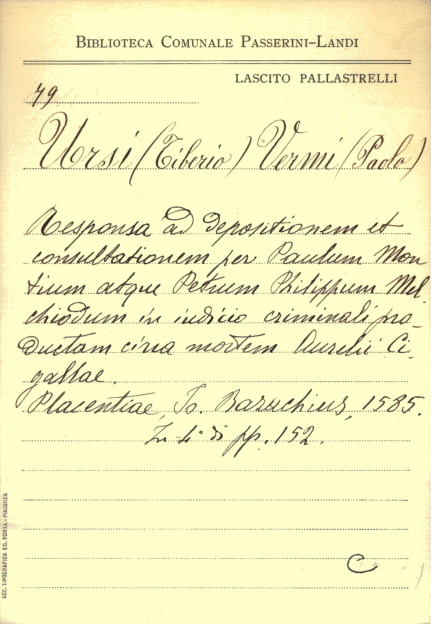 BIBLIOTECA COMUNALE PASSERINI-LANDI
LASCITO PALLASTRELLI
49
Ursi (Tiberio) Vermi (Paolo)
Responsa ad depositionem et
consultationem per Paulum Mon
tium atque Petrum Philippum Mel
chiodum in iudicio criminali pro-
ductam circa mortem Aurelii Ci-
gallae.
Placentiae, Io. Bazachius, 1585.
In 4° di pp. 152.
C
SOC. TIPOGRAFICA ED. PORTA - PIACENZA